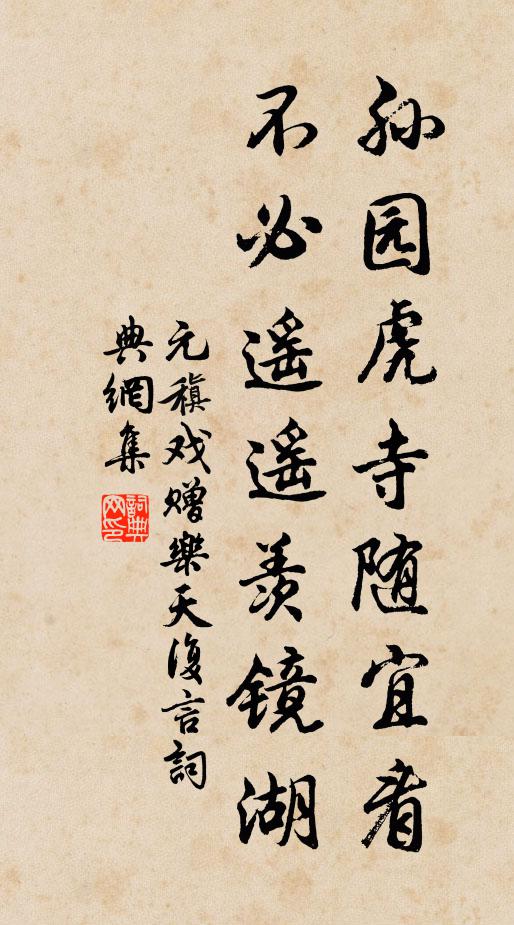 孙园虎寺随宜看
不必遥遥羡镜湖
元稹戏赠樂天復言詞
典網集
詞典网印